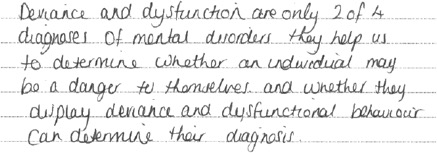 Deviance and dysfunction are only 2 of 4
diagnoses of mental disorders they help us
to determine whether an individual may
be a danger to themselves and whether they
display deviance and dysfunctional behaviour
can determine their diagnosis.